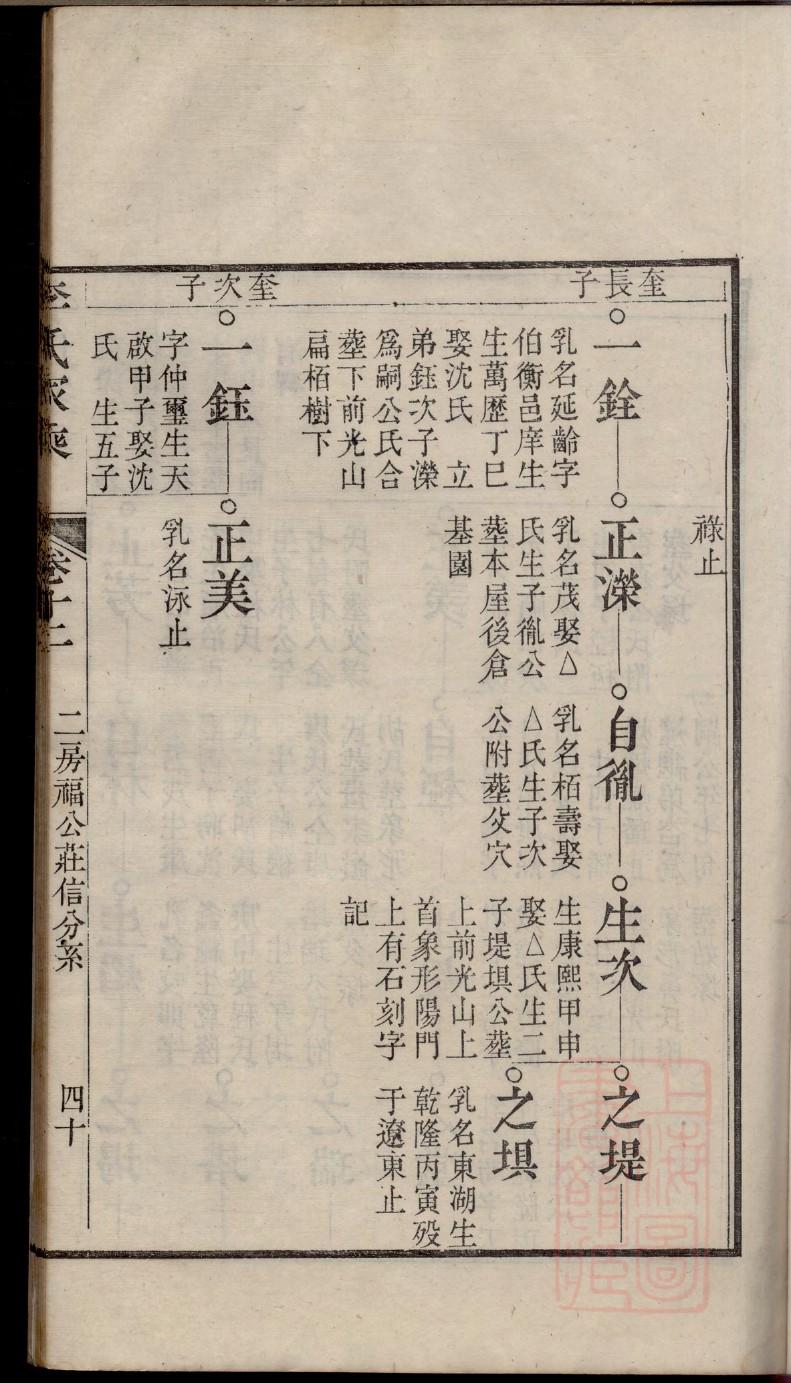 祿止
奎長子
一銓
乳名延齡字
伯衡邑庠生
生萬歷丁巳
娶沈氏　立
弟鈺次子濚
為嗣公氏合
塟下前光山
扁栢樹下
正濚
乳名茂娶△
氏生子胤公
塟本屋後倉
基園
自胤
乳名栢壽娶
△氏生子次
公附塟父穴
生次
生康熙甲申
娶△氏生二
子堤埧公塟
上前光山上
首象形陽門
上有石刻字
記
之堤
之埧
乳名東湖生
乾隆丙寅歿
于遼東止
奎次子
一鈺
字仲璽生天
啟甲子娶沈
氏　生五子
正美
乳名泳止
李氏家乘
卷十二
二房福公莊信分系
四十